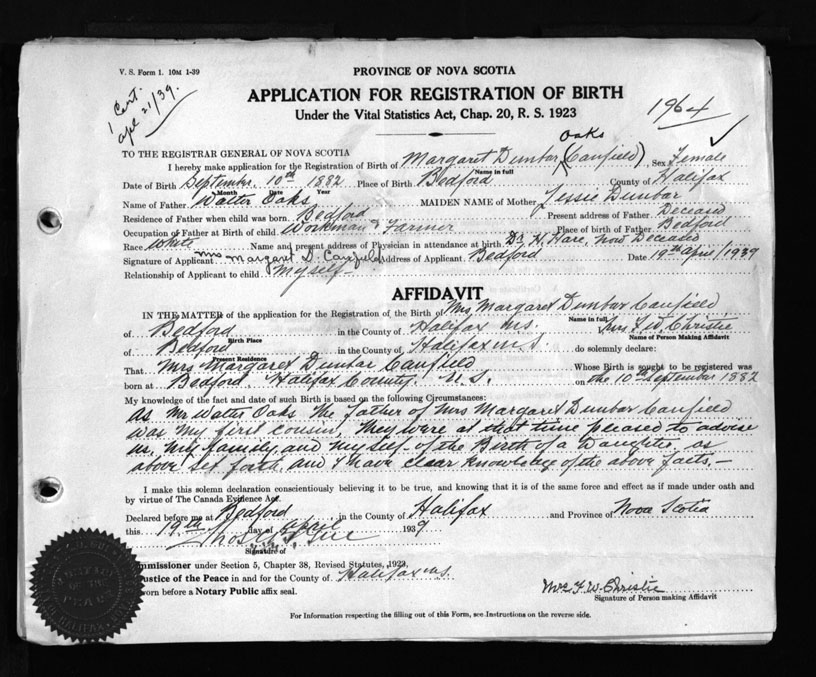 V. S. Form 1. 10M 1-39
PROVINCE OF NOVA SCOTIA
1 Cert.
Apl 21/39.
APPLICATION FOR REGISTRATION OF BIRTH
1964
Under the Vital Statistics Act, Chap. 20, R. S. 1923
Oaks
TO THE REGISTRAR GENERAL OF NOVA SCOTIA
I hereby make application for the Registration of Birth of Margaret Dunbar (Caufield), Sex Female
Name in full
Date of Birth September 10th 1882 Place of Birth Bedford County of Halifax
Month Date Year
Name of Father Walter Oaks MAIDEN NAME of Mother Jessie Dunbar
Residence of Father when child was born Bedford Present address of Father Deceased
Occupation of Father at Birth of child Workman & Farmer Place of birth of Father Bedford
Race White Name and present address of Physician in attendance at birth Dr. H. Hare, now Deceased
Signature of Applicant Mrs Margaret D. Caufield Address of Applicant Bedford Date 19th April/1939
Relationship of Applicant to child Myself
AFFIDAVIT
IN THE MATTER of the application for the Registration of the Birth of Mrs Margaret Dunbar Caufield
Name in full
of Bedford in the County of Halifax N.S. Mrs F. W. Christie
Birth Place Name of Person Making Affidavit
of Bedford in the County of Halifax N.S. do solemnly declare:
Present Residence
That Mrs Margaret Dunbar Caufield Whose Birth is sought to be registered was
born at Bedford Halifax County N.S. on the 10th September 1882
My knowledge of the fact and date of such Birth is based on the following Circumstances:
As Mr Walter Oaks the Father of Mrs Margaret Dunbar Caufield
was my first cousin, they were at that time pleased to advise
us, my family and myself of the Birth of a Daughter as
above set forth and I have clear knowledge of the above facts.—
I make this solemn declaration conscientiously believing it to be true, and knowing that it is of the same force and effect as if made under oath and
by virtue of The Canada Evidence Act.
Declared before me at Bedford in the County of Halifax and Province of Nova Scotia
this 19th day of April 1939
Signature of
Commissioner under Section 5, Chapter 38, Revised Statutes, 1923,
Justice of the Peace in and for the County of Halifax N.S.
worn before a Notary Public affix seal.
Mrs F. W. Christie
Signature of Person making Affidavit
For Information respecting the filling out of this Form, see Instructions on the reverse side.